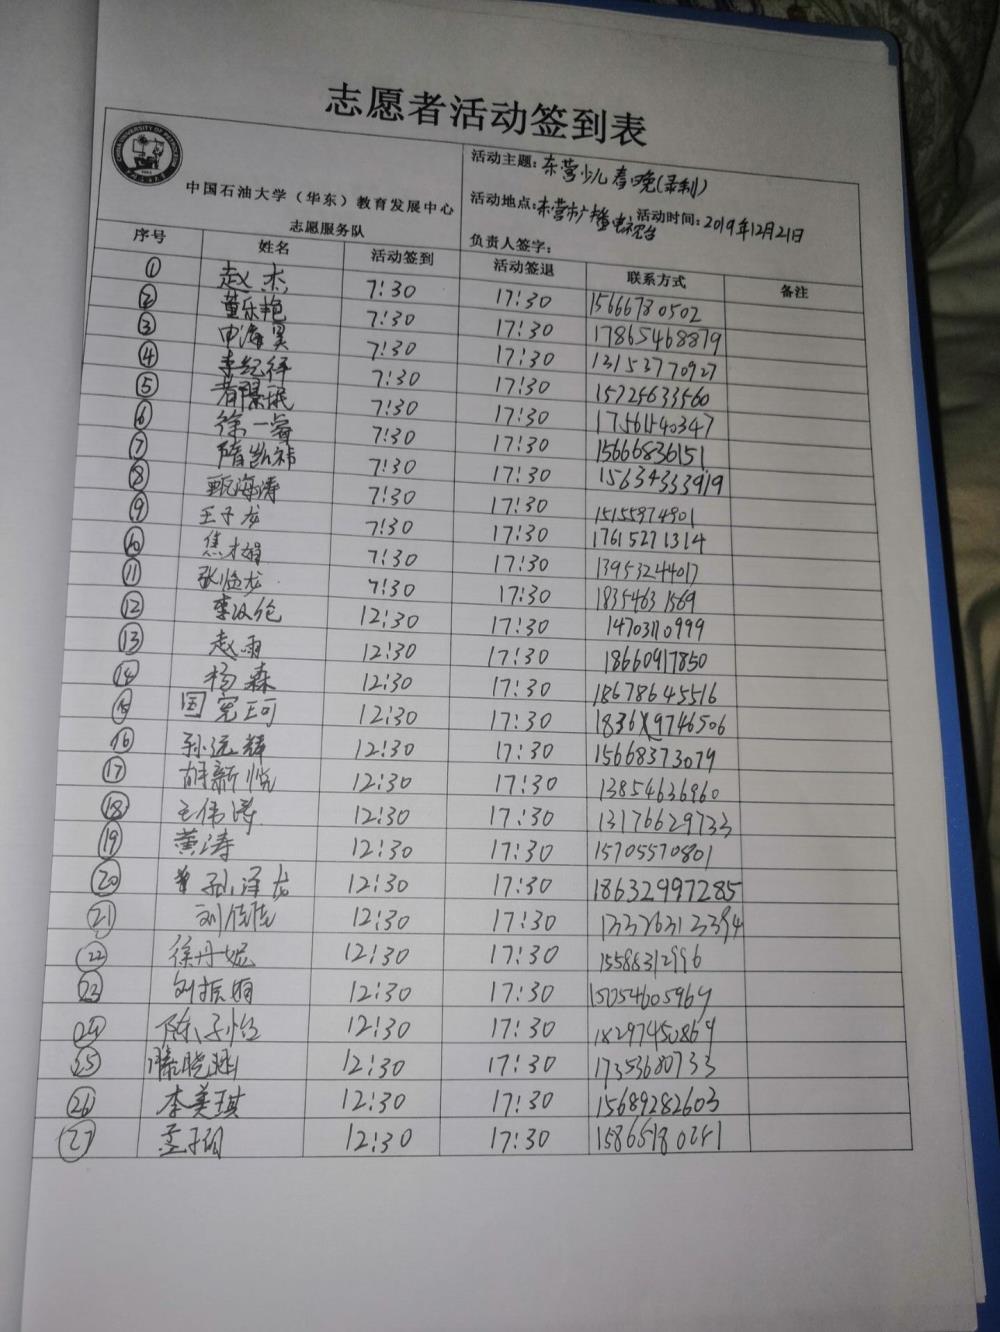 志愿者活动签到表
中国石油大学（华东）教育发展中心
志愿服务队
活动主题：东营少儿春晚(录制)
活动地点：东营市广播电视台 活动时间：2019年12月21日
负责人签字：
序号 姓名 活动签到 活动签退 联系方式 备注
① 赵杰 7:30 17:30 15666780502
② 董乐艳 7:30 17:30 17865468879
③ 申海昊 7:30 17:30 13153770927
④ 李纪祥 7:30 17:30 15725633560
⑤ 7:30 17:30 17561540347
⑥ 徐一睿 7:30 17:30 15666836151
⑦ 隋凯祎 7:30 17:30 15634333919
⑧ 甄海涛 7:30 17:30 15155974901
⑨ 王子龙 7:30 17:30 17615271314
⑩ 7:30 17:30 13953244017
⑪ 张临龙 7:30 17:30 18354631569
⑫ 李汶伦 12:30 17:30 14703110999
⑬ 赵雨 12:30 17:30 18660917850
⑭ 杨森 12:30 17:30 18678645516
⑮ 国宪珂 12:30 17:30
⑯ 孙远辉 12:30 17:30 15668373079
⑰ 胡新悦 12:30 17:30 13854636960
⑱ 王伟涛 12:30 17:30 13176629733
⑲ 黄涛 12:30 17:30 15705570801
⑳ 孙泽龙 12:30 17:30 18632997285
㉑ 刘佳佳 12:30 17:30
㉒ 徐丹妮 12:30 17:30 15588312996
㉓ 刘振娟 12:30 17:30 15054605969
㉔ 陈子怡 12:30 17:30 18297450869
㉕ 滕晓 12:30 17:30 17353680733
㉖ 李美琪 12:30 17:30 15689282603
㉗ 12:30 17:30 15865180241